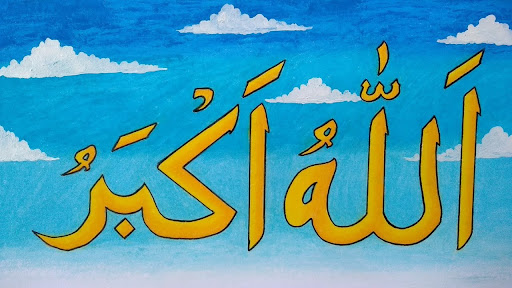 اَللّٰهُ اَكْبَرُ